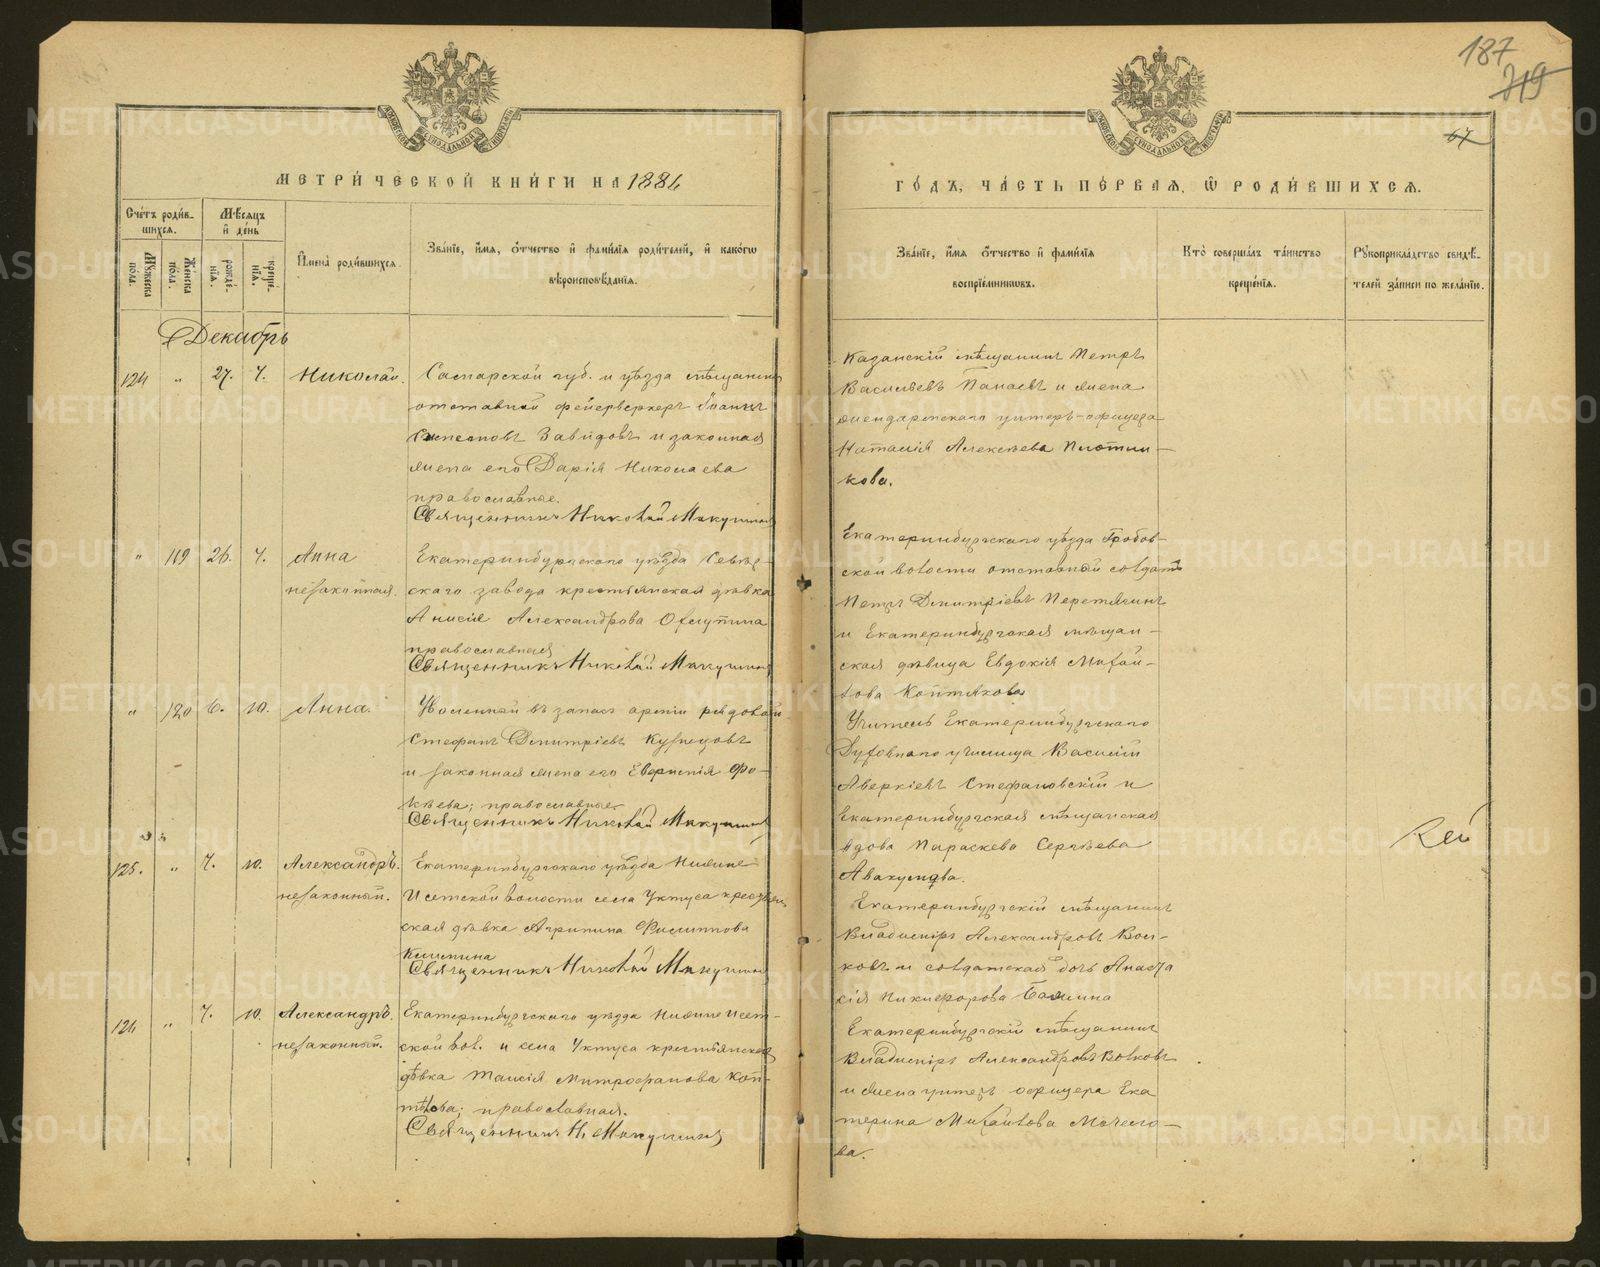 187
219
67
МЕТРИ́ЧЕСКОЙ КНИ́ГИ НА 1886
ГО́ДЪ, ЧА́СТЬ ПЕ́РВАЯ, Ѿ РОДИ́ВШИХСЯ.
Сче́тъ роди́в-
шихся.
Мѣ́сяцъ
и҆ де́нь
Мꙋжеска
пола.
Женска
по́ла.
рожде́-
нїя.
креще́-
нїя.
И҆мена̀ роди́вшихся.
Зва́нїе, и҆́мя, ѻ҆́тчество и҆ фами́лїя роди́телей, и҆ како́гѡ
вѣроисповѣ́данїя.
Зва́нїе, и҆́мя ѻ҆́тчество и҆ фами́лїя
воспрїе́мниковъ.
Кто̀ соверша́лъ та́инство
креще́нїя.
Рꙋкоприкла́дство свидѣ́-
телей за́писи по жела́нїю.
Декабрь
124 " 27. 7. Николай.
Самарской губ. и уѣзда мѣщанинъ
отставной фейерверкеръ Іоаннъ
Завидовъ и законная
жена его Дарія Николаева
православные.
Священникъ Николай Макушинъ
Казанскій мѣщанинъ Петръ
Васильевъ Панаевъ и жена
жандармскаго унтеръ-офицера
Наталія Алексѣева Плотни-
кова.
" 119 26. 7. Анна
незаконная.
Екатеринбургскаго уѣзда Север-
скаго завода крестьянская дѣвка
Анисія Александрова
православная
Священникъ Николай Макушинъ
Екатеринбургскаго уѣзда Гробов-
ской волости отставной солдатъ
Петръ Димитріевъ Перетягинъ
и Екатеринбургская мѣщан-
ская дѣвица Евдокія Михай-
лова Коптякова
" 120 6. 10. Анна.
Уволенный въ запасъ арміи рядовой
Стефанъ Димитріевъ Кузнецовъ
и законная жена его Евфимія Фо-
кѣева; православные
Священникъ Николай Макушинъ
Учитель Екатеринбургскаго
Духовнаго училища Василій
Аверкіевъ Стефановскій и
Екатеринбургская мѣщанская
вдова Параскева Сергѣева
Авакумова.
125. " 7. 10. Александръ.
незаконный.
Екатеринбургскаго уѣзда Нижне
Исетской волости села Уктуса крестьян
ская дѣвка Агрипина Филиппова
Священникъ Николай Макушинъ
Екатеринбургскій мѣщанинъ
Владиміръ Александровъ Вол-
ковъ и солдатская дочь Анаста
сія Никифорова
126 " 7. 10. Александръ.
незаконный.
Екатеринбургскаго уѣзда Нижне Исет-
ской вол. и села Уктуса крестьянская
дѣвка Таисія Митрофанова Коп-
тѣлова; православная.
Священникъ Н. Макушинъ
Екатеринбургскій мѣщанинъ
Владиміръ Александровъ Волковъ
и жена унтеръ офицера Ека
терина Михайлова
ва.
METRIKI.GASO-URAL.RU